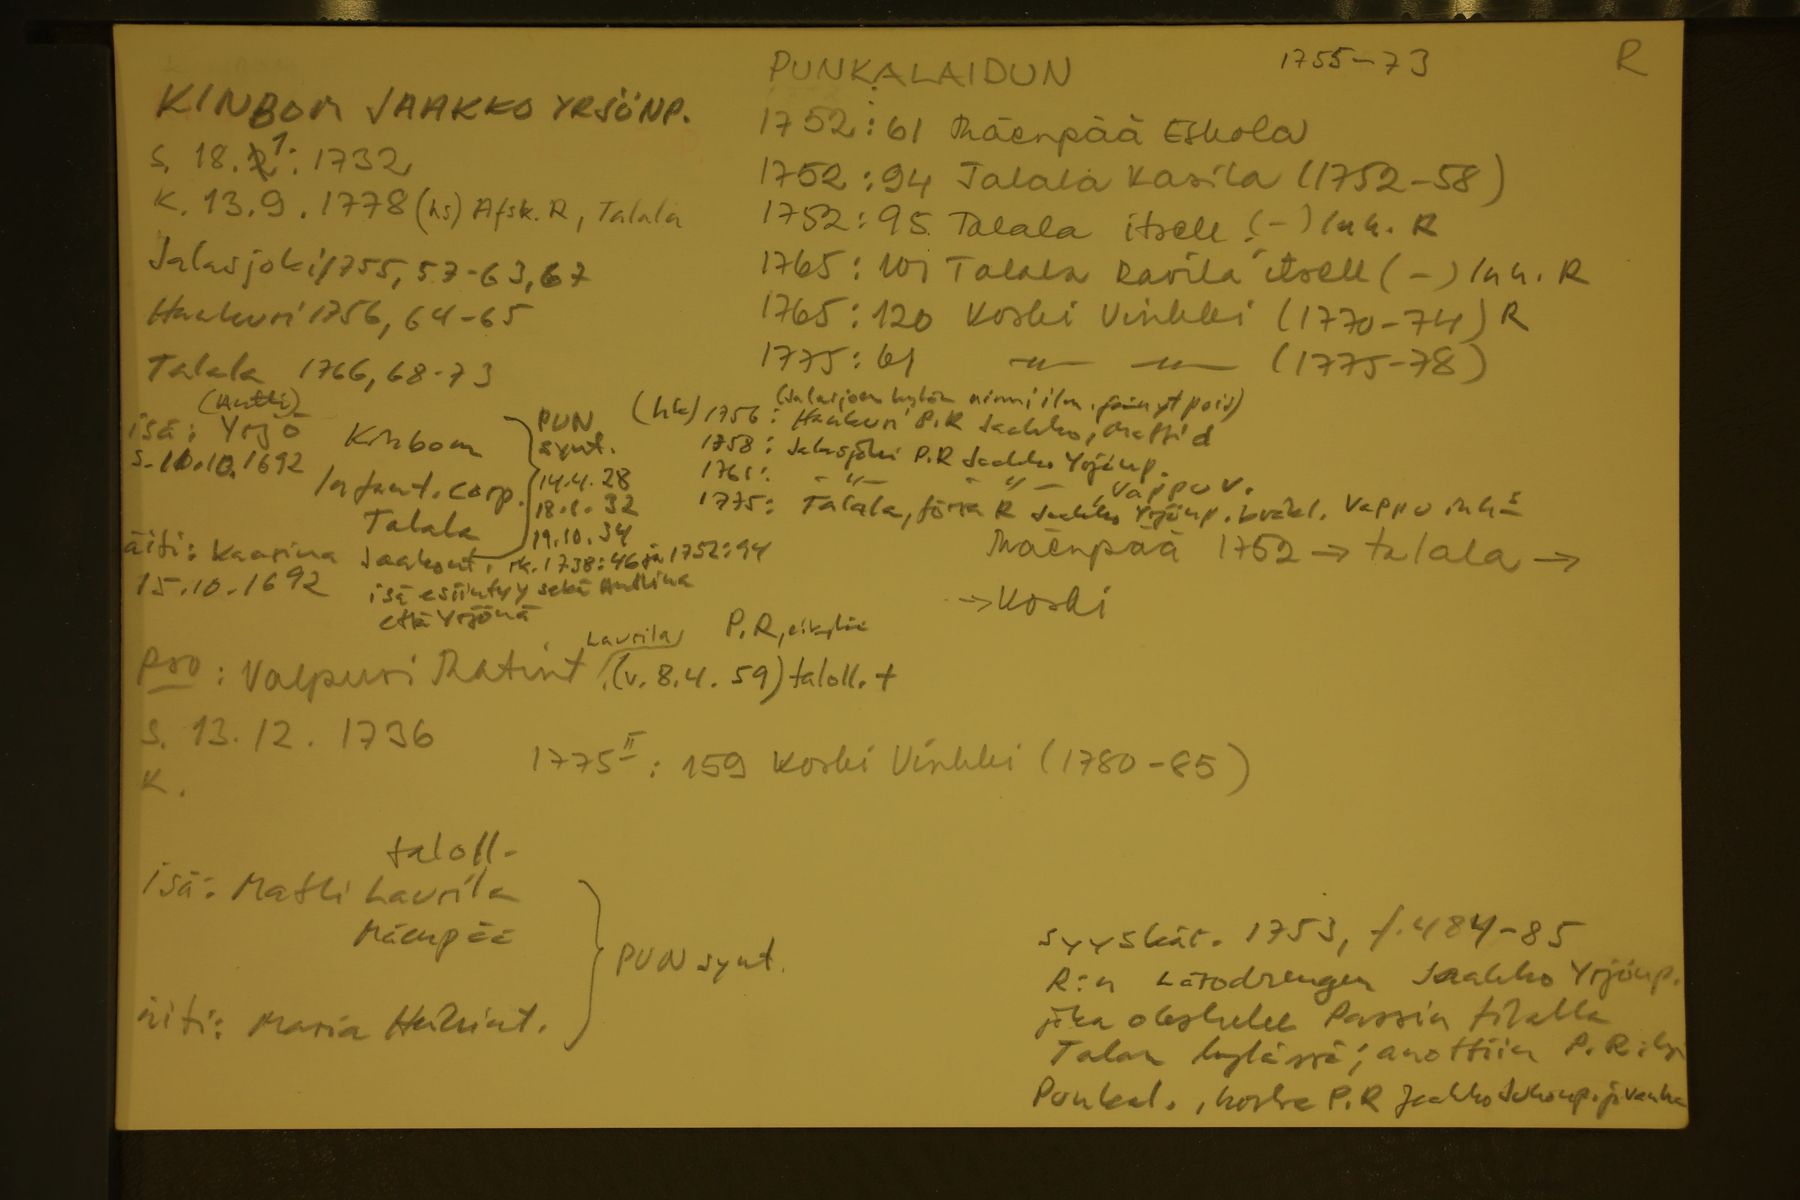 PUNKALAIDUN 1755-73 R
KINBOM JAAKKO YRJÖNP.
s. 18.1. 1732
K. 13.9. 1778 (hs) Afsk. R, Talala
Jalasjoki 1755, 57-63, 67
Haakuri 1756, 64-65
Talala 1766, 68-73
1752:61 Mäenpää Eskola
1752:94 Talala Kasila (1752-58)
1752:95 Talala itsell. (-) Inh. R
1765:101 Talala itsell (-) Inh. R
1765:120 Koski Vinkki (1770-74) R
1775:61 -"- -"- (1775-78)
(Antti)
isä: Yrjö Kinbom
s. 10.10.1692
Infant. corp.
Talala
äiti: Kaarina Jaakont.
15.10.1692
PUN
synt.
14.4.28
18.1.32
19.10.34
rk. 1738:46 ja 1752:94
isä esiintyy sekä Anttina
että Yrjönä
(Jalasjoen kylän nimi ilm. jäänyt pois)
(hk) 1756: Haakuri P.R Jaakko, Matti d
1758: Jalasjoki P.R Jaakko Yrjönp.
1761: -"- -"-, Vappu v.
1775: Talala, förra R Jaakko Yrjönp. Vappu inh:s
Mäenpää 1752 → Talala →
→ Koski
pso: Valpuri Matint. Laurila (v. 8.4.59) taloll. t
P.R,
s. 13.12. 1736
K.
1775 II: 159 Koski Vinkki (1780-85)
taloll.
isä: Matti Laurila
Mäenpää
äiti: Maria Heikint.
PUN synt.
syyskär. 1753, f. 484-85
R:n Lärodrengen Jaakko Yrjönp.
joka oleskelee Passin tilalla
Talan kylässä; anottiin P.R:ksi
Punkal., koska P.R Jaakko Jaakonp. jo vanha